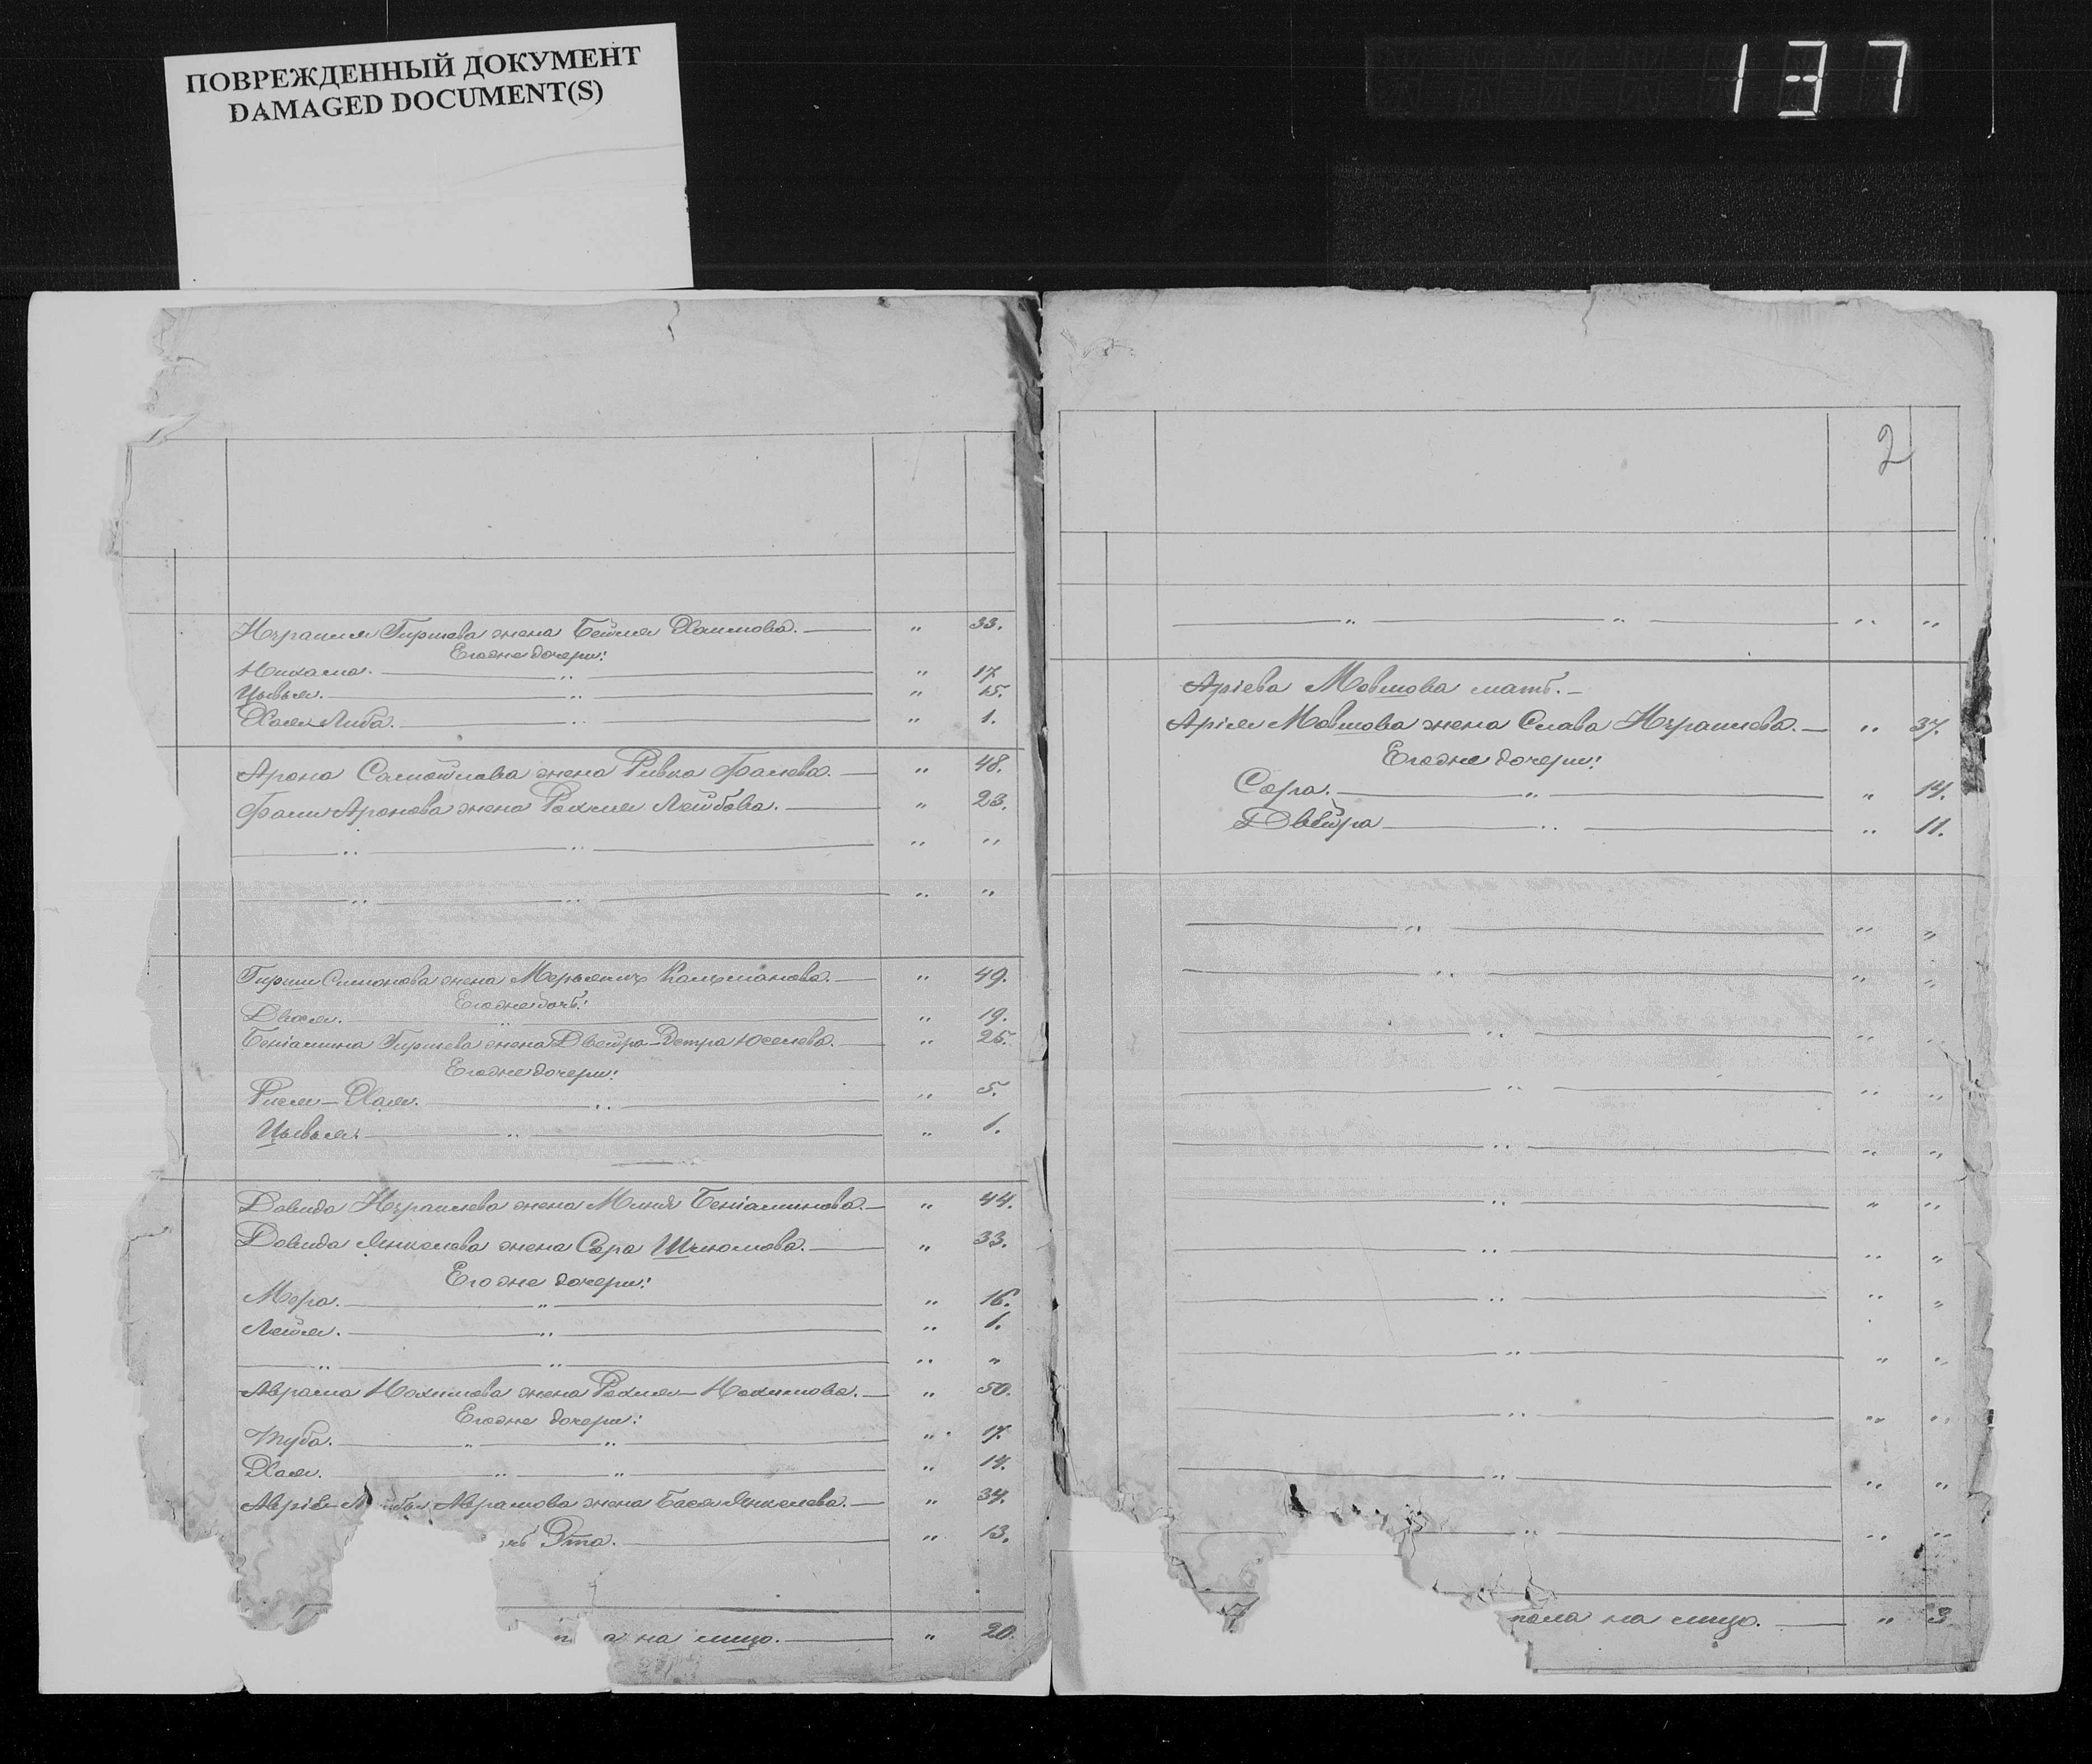 ПОВРЕЖДЕННЫЙ ДОКУМЕНТ
DAMAGED DOCUMENT(S)
137
Израиля Гиршева жена Бейля Хаимова. — " 33.
Его же дочери:
Нихама. — " — " 17
Цывья. — " — " 15.
Хая Либа. — " — " 1.
Арона Самойлова жена Ривка Фалева. — " 48.
Фали Аронова жена Рохля Лейбова. — " 23.
— " — " — " "
— " — " — " "
Гирши Симонова жена Калмановa. — " 49.
Его же дочь:
Двося. — " — " 19.
Беніамина Гиршева жена Двейра Іоселева. — " 25.
Его же дочери:
Рися-Хая. — " — " 5.
Цывья. — " — " 1.
Довида Израилева жена Беніаминова. — " 44.
Довида Янкелева жена Сора Шлюмова. — " 33.
Его же дочери:
Мера. — " — " 16.
Лейя. — " — " 1.
— " — " — " "
Аврама Нохимова жена Рохля Нохимова. — " 50.
Его же дочери:
Туба. — " — " — " 17.
Хая. — " — " — " 14.
Аврамова жена Бася Янкелева. — " 34.
Эта. — " 13.
на лицо. — " 20.
2
— " — " — " "
Аріева Мовшова мать. —
Арія Мовшова жена Слава Израилева. — " 37.
Его же дочери:
Сора. — " — " 14.
Двейра — " — " 11.
— " — " "
— " — " "
— " — " "
— " — " "
— " — " "
— " — " "
— " — " "
— " — " "
— " — " "
— " — " "
— " — " "
— " — " "
пола на лицо. — " 3